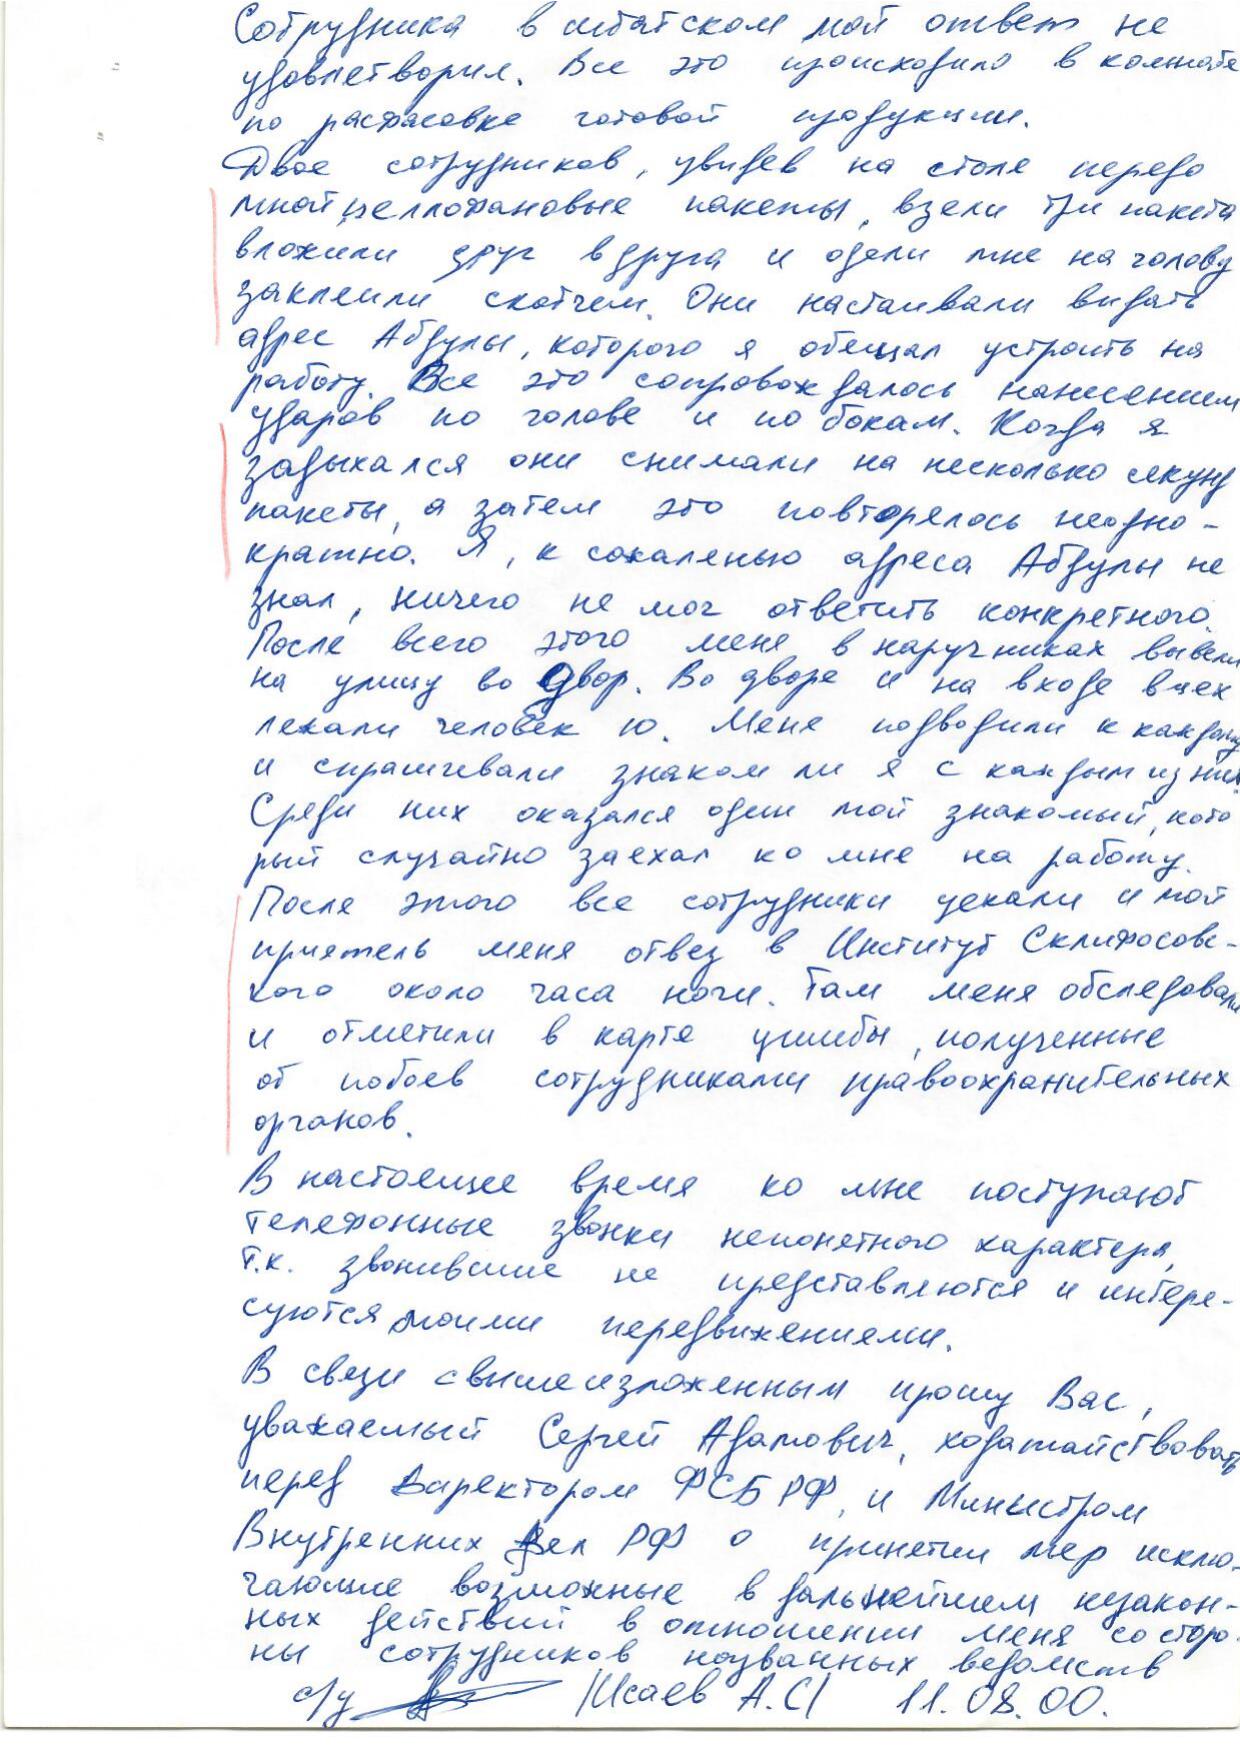 Сотрудника в штатском мой ответ не
удовлетворил. Все это происходило в комнате
по расфасовке готовой продукции.
Двое сотрудников, увидев на столе передо
мной целлофановые пакеты, взели три пакета
вложили друг в друга и одели мне на голову
заклеили скотчем. Они настаивали видать
адрес Абдулы, которого я обещал устроить на
работу. Все это сопровождалось нанесением
ударов по голове и по бокам. Когда я
задыхался они снимали на несколько секунд
пакеты, а затем это повторелось неодно-
кратно. Я, к сожаленью адреса Абдулы не
знал, ничего не мог ответить конкретного.
После всего этого меня в наручниках вывели
на улицу во двор. Во дворе и на входе в цех
лежали человек 10. Меня подводили к каждому
и спрашивали знаком ли я с каждым из них.
Среди них оказался один мой знакомый, кото
рый случайно заехал ко мне на работу.
После этого все сотрудники уехали и мой
приятель меня отвез в Институт Склифосовс-
кого около часа ночи. Там меня обследовали
и отметили в карте ушибы, полученные
от побоев сотрудниками правоохранительных
органов.
В настоещее время ко мне поступают
телефонные звонки непонетного характера,
т.к. звонившие не представляются и интере-
суются моими передвижениеми.
В связи с вышеизложенным прошу Вас,
уважаемый Сергей Адамович, ходатайствовать
перед Директором ФСБ РФ, и Министром
Внутренних Дел РФ о принетии мер исклю-
чающие возможные в дальнейшем незакон-
ных действий в отношении меня со сторо-
ны сотрудников названных ведомств
с/у /Исаев А.С/ 11.08.00.